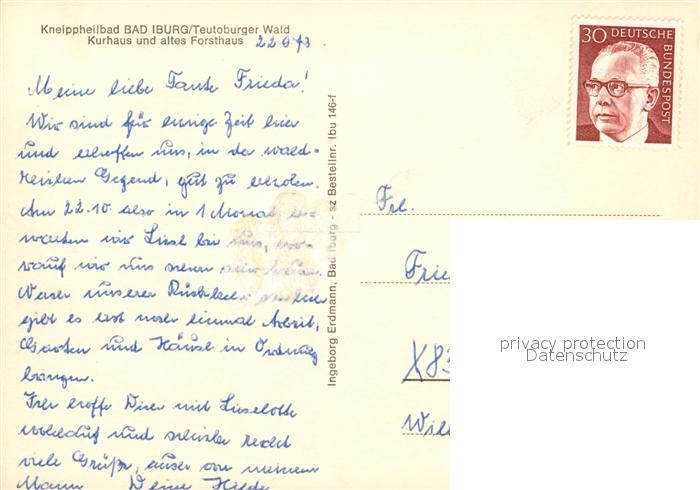 Kneippheilbad BAD IBURG/Teutoburger Wald
Kurhaus und altes Forsthaus
22.9.73
Meine liebe Tante Frieda!
Wir sind für einige Zeit hier
und erhoffen uns, in der wald=
reichen Gegend, gut zu erholen.
Am 22.10. also in 1 Monat er=
warten wir Liesl bei uns, wo=
rauf wir uns sehr freuen.
Nach unserer Rückkehr
gibt es erst noch einmal Arbeit,
Garten und Häusl in Ordnung
bringen.
Ich hoffe Dich mit Lieselotte
wohlauf und schicke recht
viele Grüße, auch von meinem
Mann Deine Hilde
Ingeborg Erdmann, Bad Iburg - sz Bestellnr. Ibu 146-f
30 DEUTSCHE
BUNDESPOST
Frl.
Frie
X83
Wil
privacy protection
Datenschutz